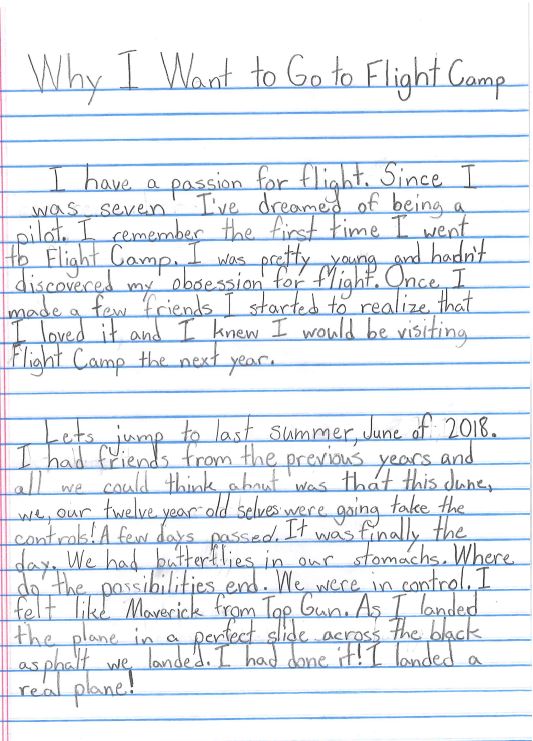 Why I Want to Go to Flight Camp
I have a passion for flight. Since I
was seven I've dreamed of being a
pilot. I remember the first time I went
to Flight Camp. I was pretty young and hadn't
discovered my obsession for flight. Once I
made a few friends I started to realize that
I loved it and I knew I would be visiting
Flight Camp the next year.
Lets jump to last summer, June of 2018.
I had friends from the previous years and
all we could think about was that this June,
we, our twelve year old selves were going take the
controls! A few days passed. It was finally the
day. We had butterflies in our stomachs. Where
do the possibilities end. We were in control. I
felt like Maverick from Top Gun. As I landed
the plane in a perfect slide across the black
asphalt we landed. I had done it! I landed a
real plane!